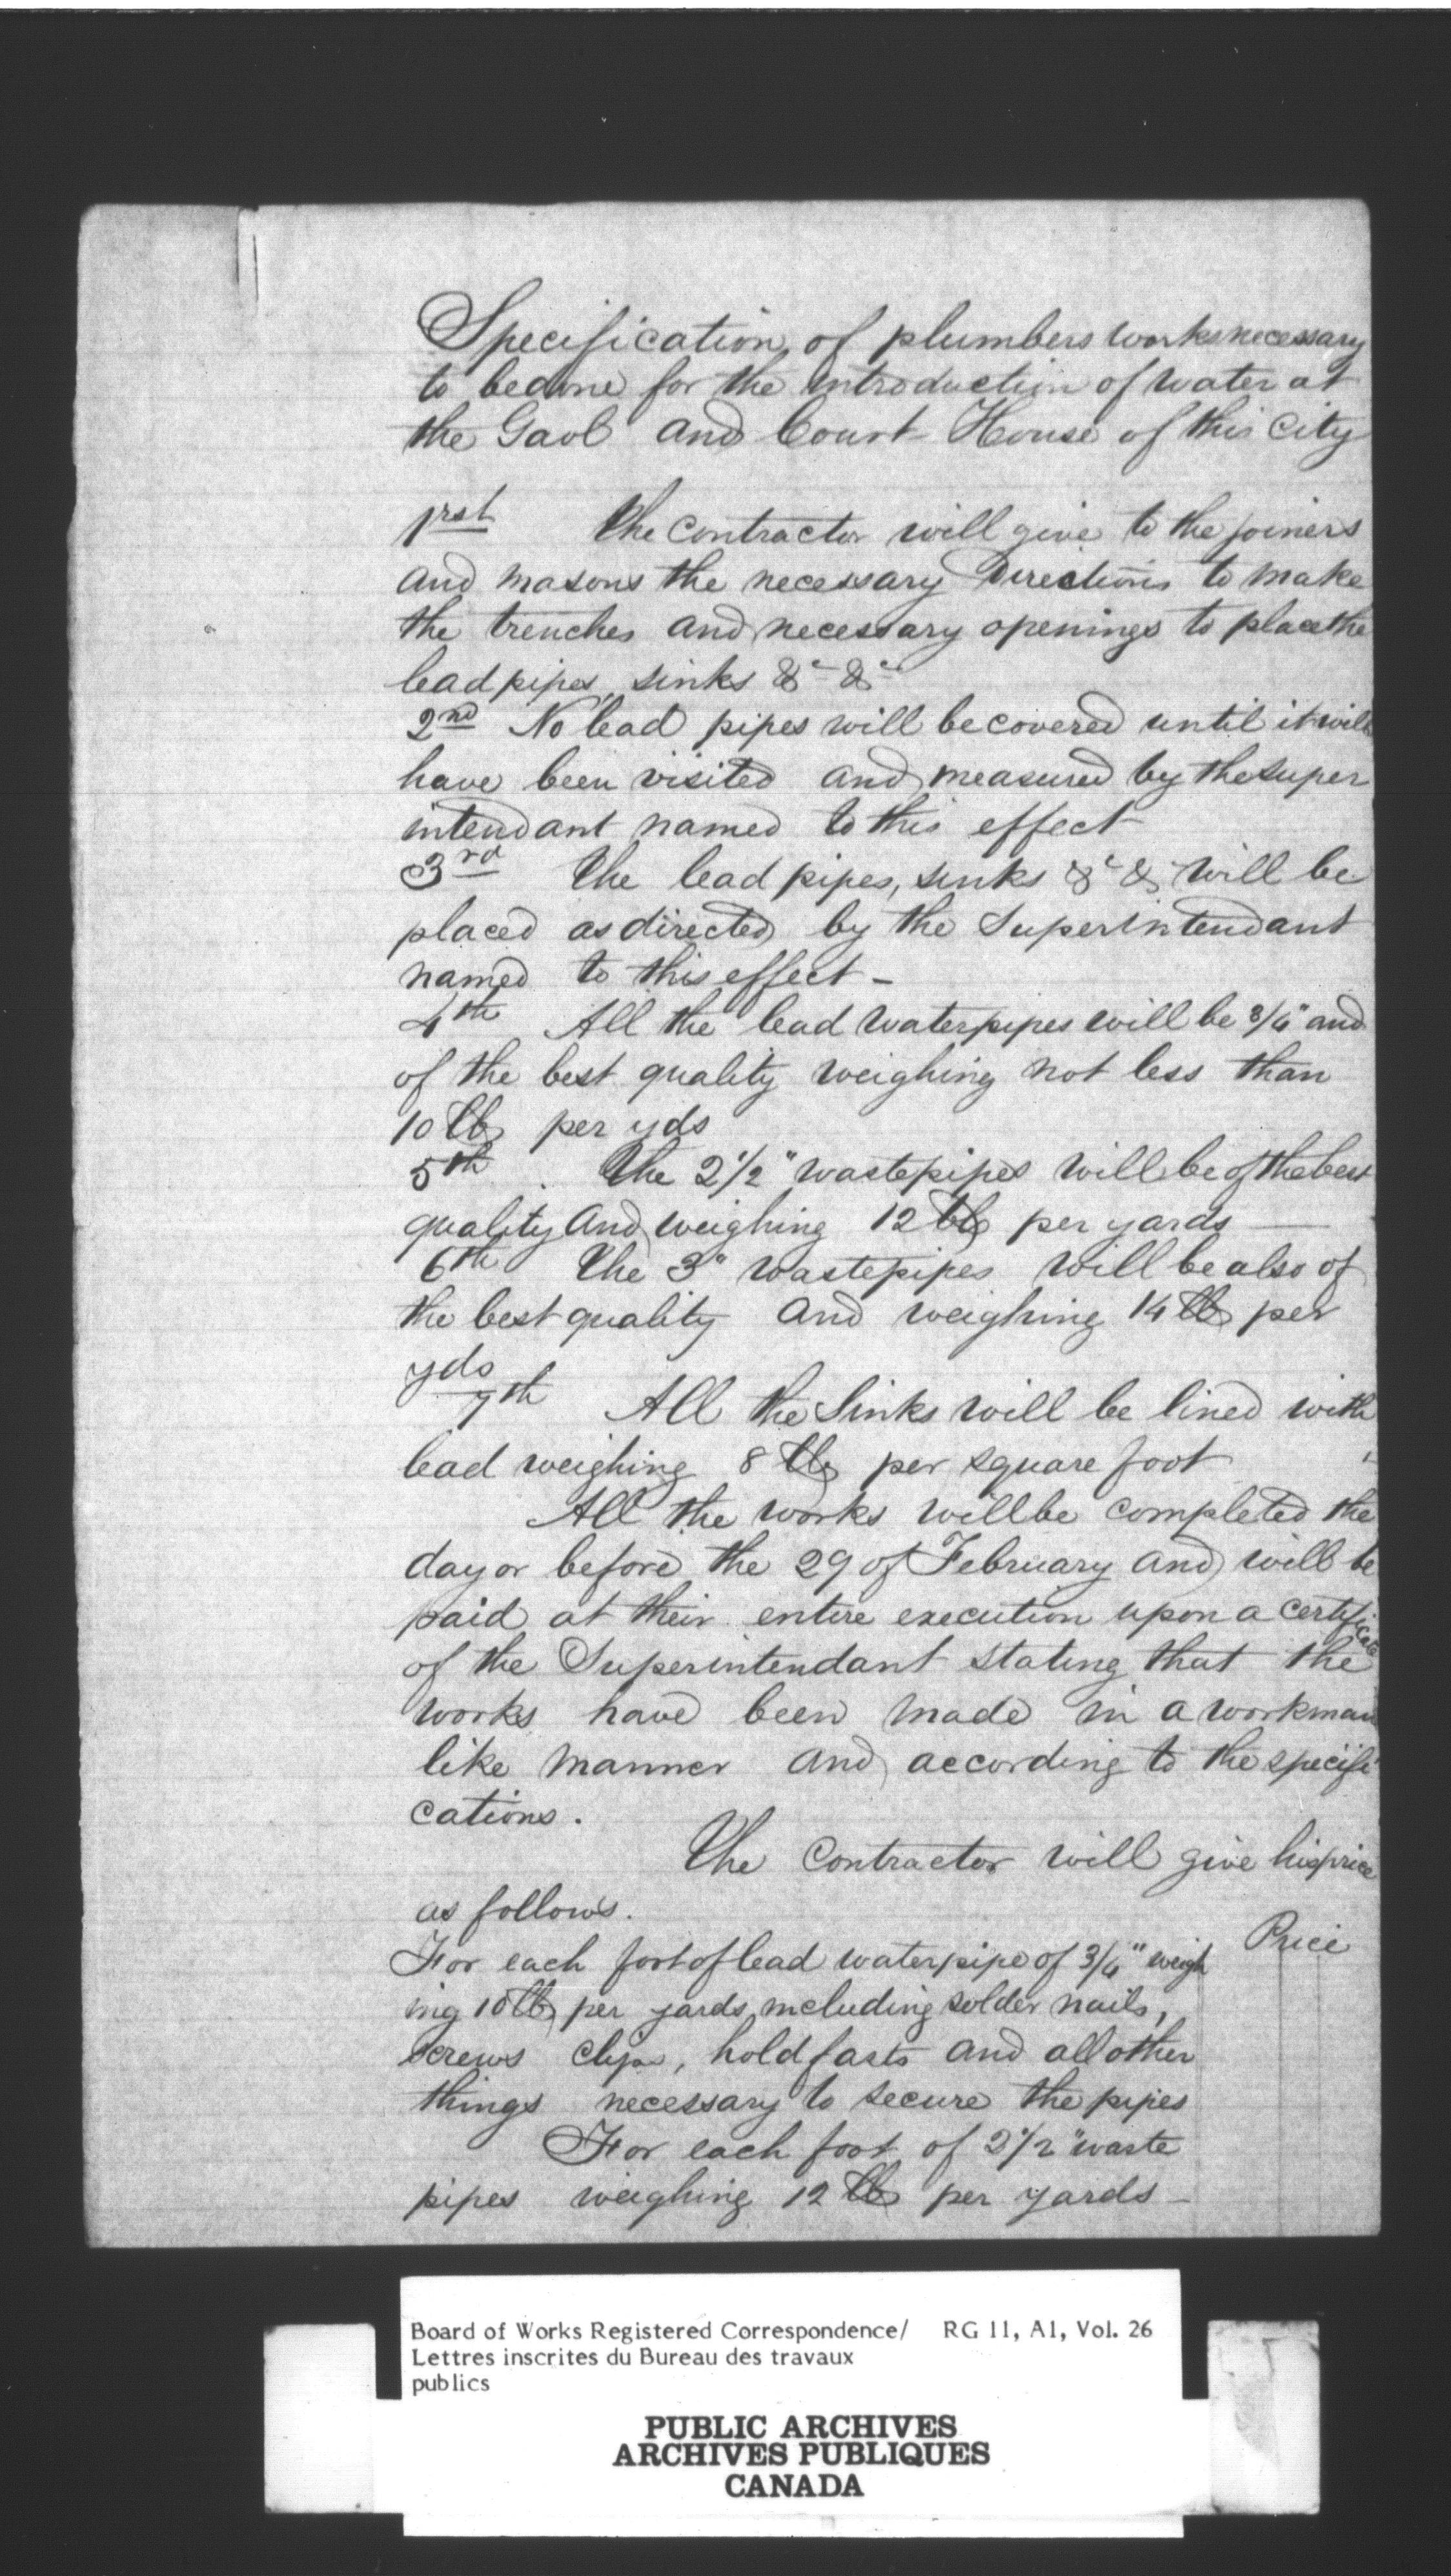 Specification of plumbers works necessary
to be done for the introduction of water at
the Gaol and Court House of this City
1rst The Contractor will give to the joiners
and masons the necessary Directions to make
the trenches and necessary openings to place the
lead pipes, sinks &c &c
2nd No lead pipes will be covered until it will
have been visited and measured by the Super
intendant named to this effect
3rd The lead pipes, sinks &c & will be
placed as directed by the Superintendant
named to this effect -
4th All the lead waterpipes will be 3/4" and
of the best quality weighing not less than
10 lb per yds
5th The 2 1/2" wastepipes will be of the best
quality and weighing 12 lb per yards —
6th The 3" wastepipes will be also of
the best quality and weighing 14 lb per
yds
7th All the Sinks will be lined with
lead weighing 8 lb per square foot
All the works will be completed the
day or before the 29 of February and will be
paid at their entire execution upon a certificate
of the Superintendant stating that the
works have been made in a workman
like manner and according to the specifi
cations.
The Contractor will give his price
as follows.
Price
For each foot of lead waterpipe of 3/4" weigh
ing 10 lb per yards, including solder nails,
screws clips, hold fasts and all other
things necessary to secure the pipes
For each foot of 2 1/2" waste
pipes weighing 12 lb per yards -
Board of Works Registered Correspondence/ RG 11, A1, Vol. 26
Lettres inscrites du Bureau des travaux
publics
PUBLIC ARCHIVES
ARCHIVES PUBLIQUES
CANADA